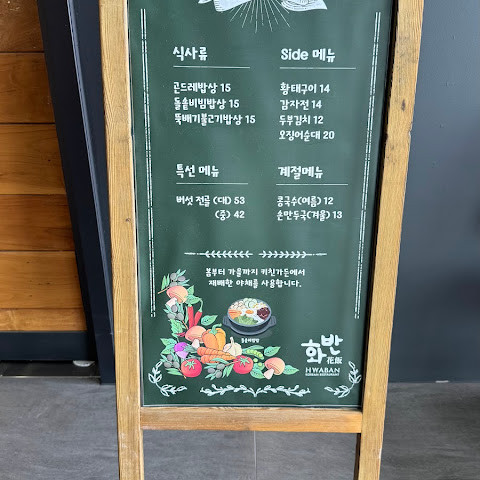 식사류
곤드레밥상 15
돌솥비빔밥상 15
뚝배기불고기밥상 15
Side 메뉴
황태구이 14
감자전 14
두부김치 12
오징어순대 20
특선 메뉴
버섯 전골 (대) 53
(중) 42
계절메뉴
콩국수(여름) 12
손만두국(겨울) 13
봄부터 가을까지 키친가든에서
재배한 야채를 사용합니다.
돌솥비빔밥
화반
花飯
HWABAN
KOREAN RESTAURANT